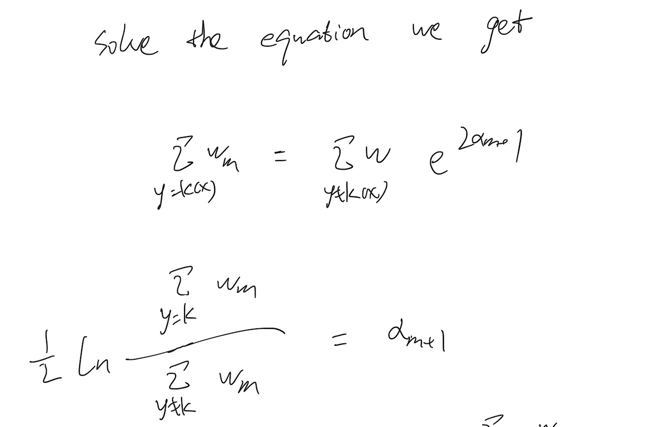 solve the equation we get
∑_{y=k(x)} w_m = ∑_{y≠k(x)} w e^{2α_{m+1}}
1/2 ln (∑_{y=k} w_m / ∑_{y≠k} w_m) = α_{m+1}